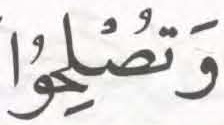 وَتُصْلِحُوا